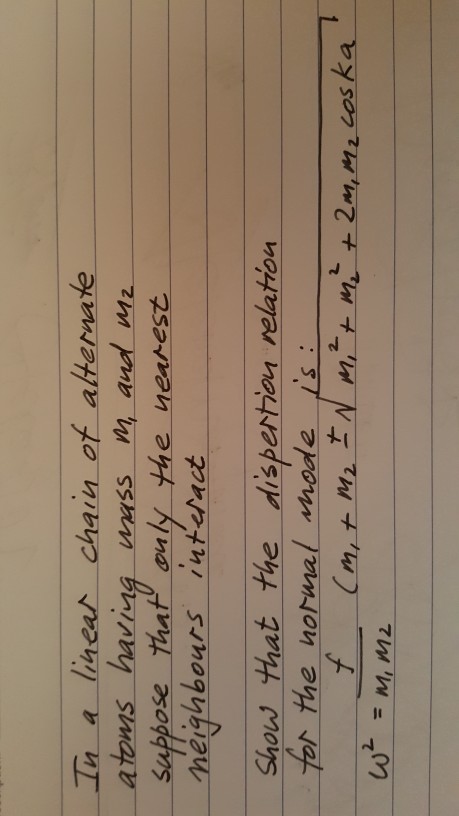 In a linear chain of alternate
atoms having mass m₁ and m₂
suppose that only the nearest
neighbours interact
Show that the dispertion relation
for the normal mode is:
ω² = f/m₁m₂ (m₁ + m₂ ± √m₁² + m₂² + 2m₁m₂ cos ka